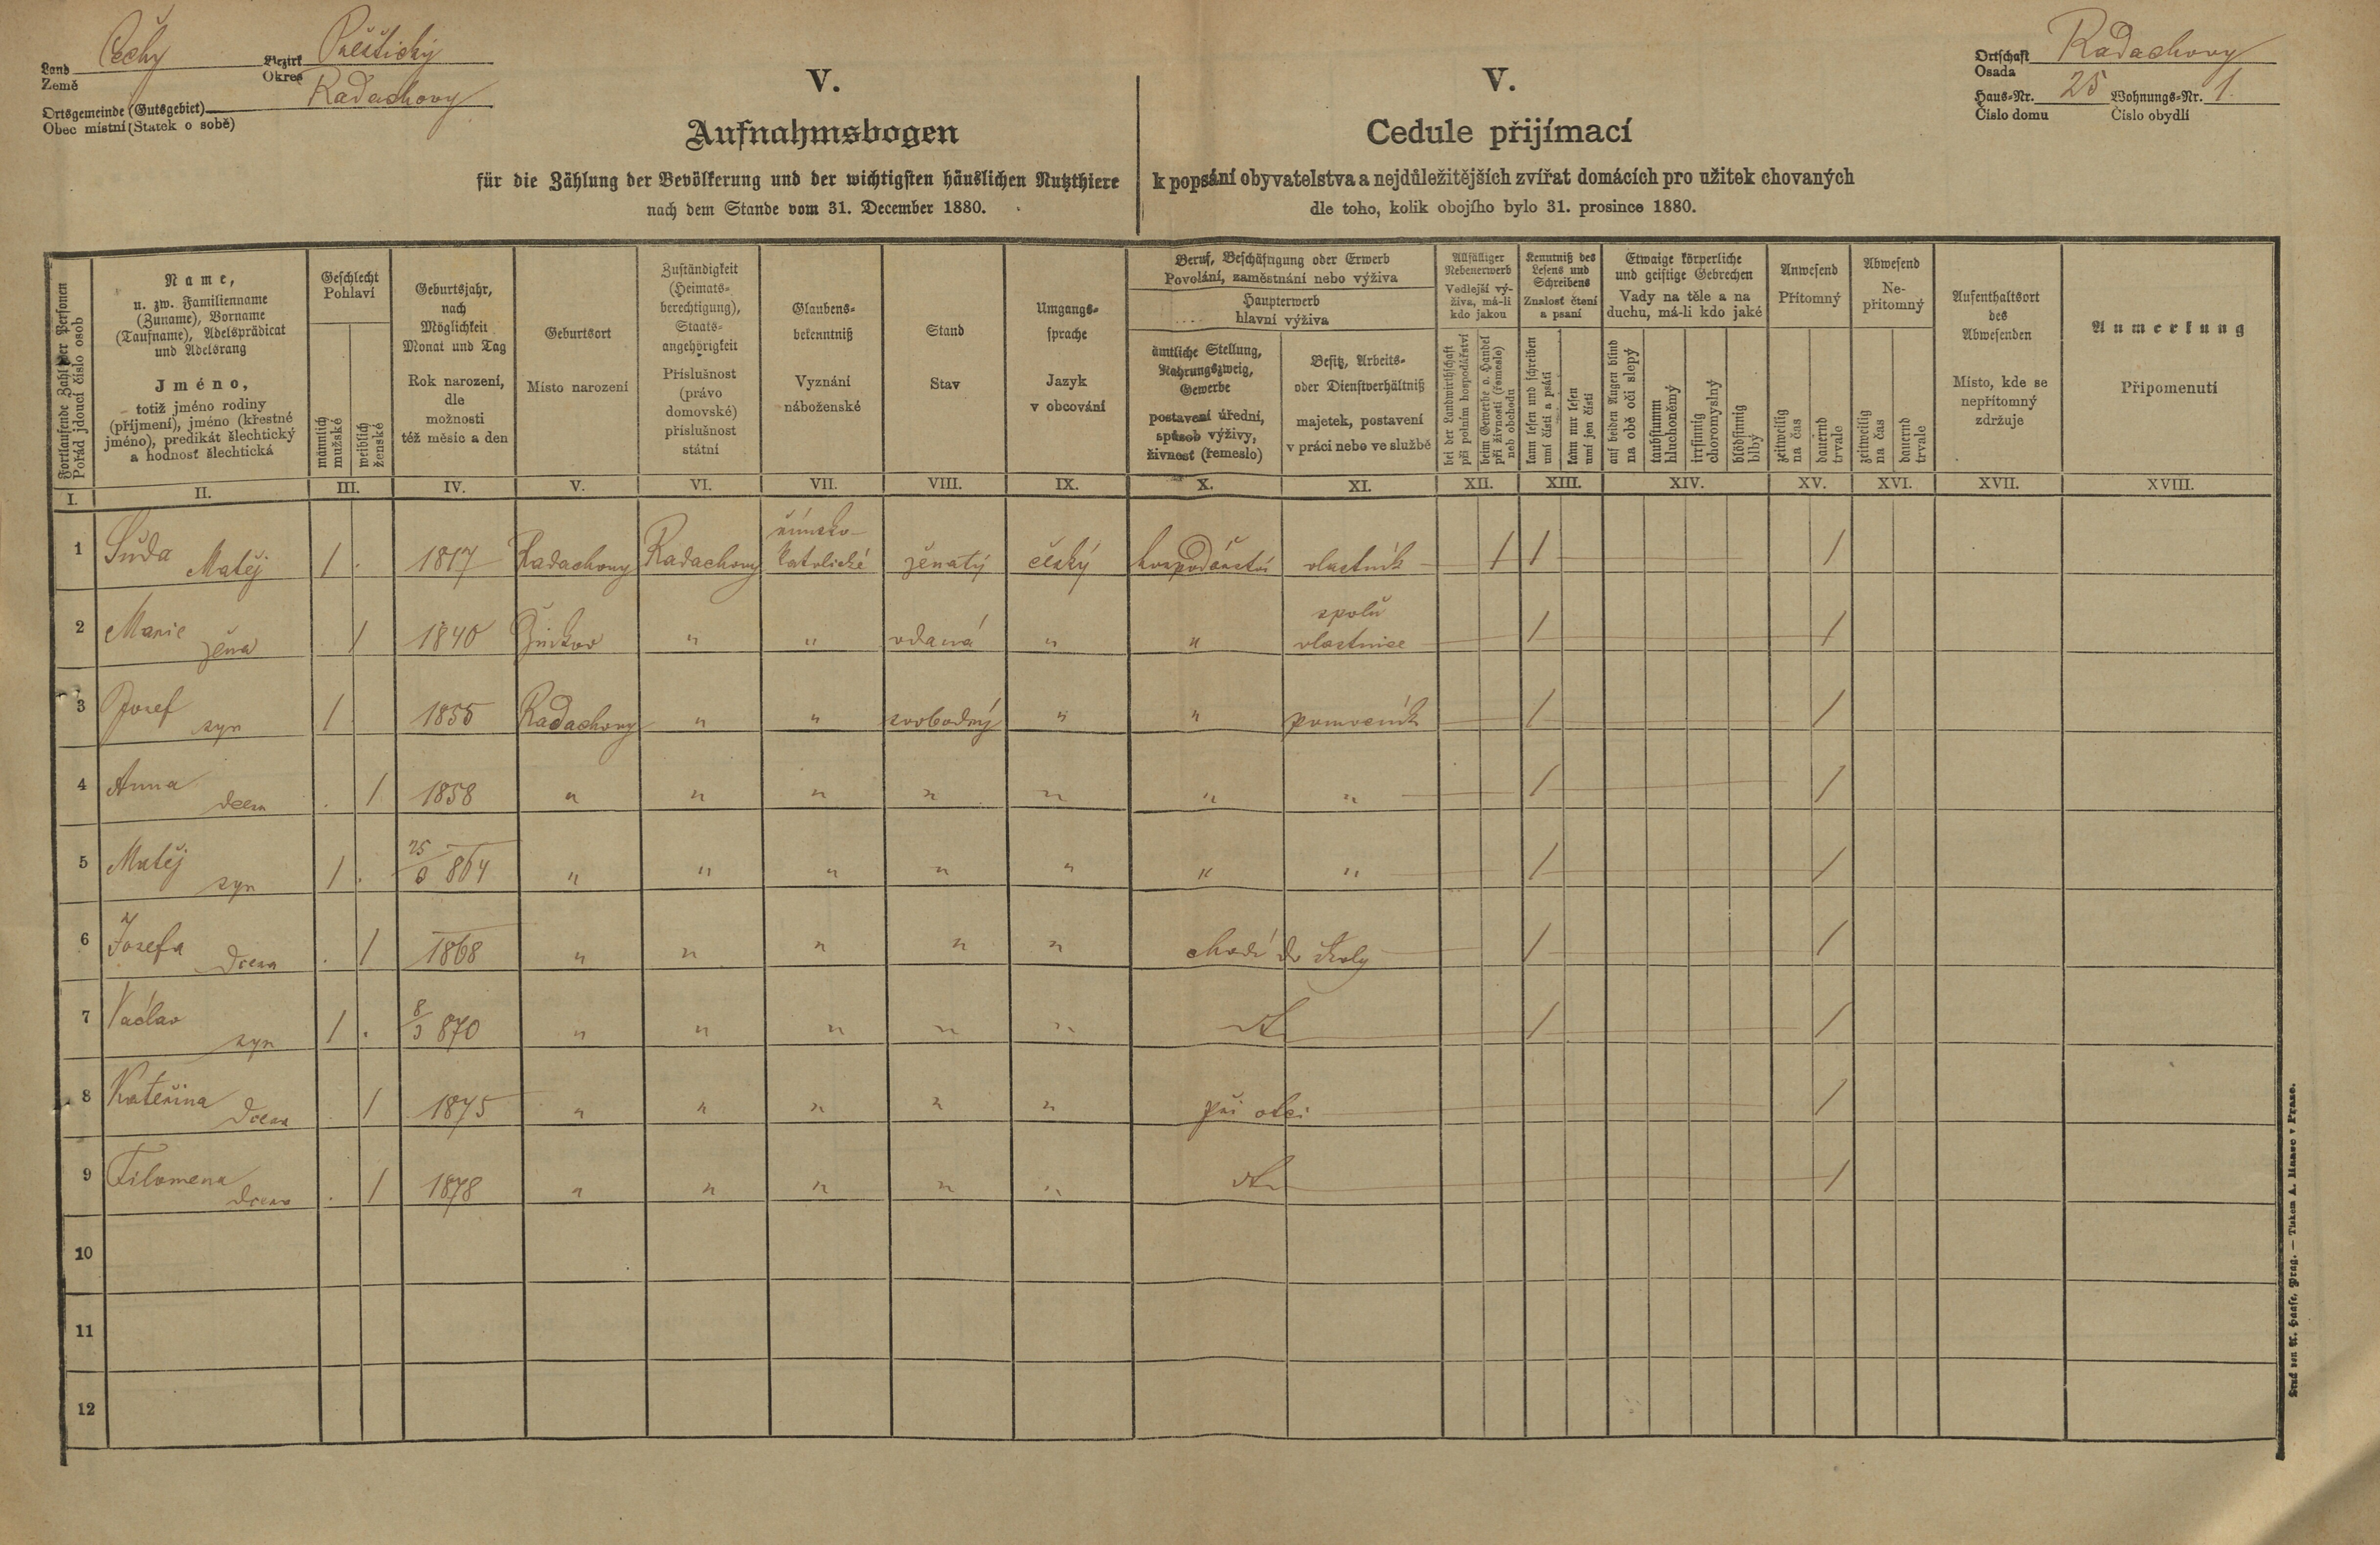 Land Čechy Bezirk Přeštický
Země Okres
Ortsgemeinde (Gutsgebiet) Radachovy
Obec místní (Statek o sobě)
Ortschaft Radachovy
Osada
Haus-Nr. 25 Wohnungs-Nr. 1.
Číslo domu Číslo obydlí
V.
Aufnahmsbogen
für die Zählung der Bevölkerung und der wichtigsten häuslichen Nutzthiere
nach dem Stande vom 31. December 1880.
V.
Cedule přijímací
k popsání obyvatelstva a nejdůležitějších zvířat domácích pro užitek chovaných
dle toho, kolik obojího bylo 31. prosince 1880.
Fortlaufende Zahl der Personen
Pořád jdoucí číslo osob
Name,
u. zw. Familienname
(Zuname), Vorname
(Taufname), Adelsprädicat
und Adelsrang
Jméno,
totiž jméno rodiny
(příjmení), jméno (křestné
jméno), predikát šlechtický
a hodnosť šlechtická
Geschlecht
Pohlaví
männlich
mužské
weiblich
ženské
Geburtsjahr,
nach
Möglichkeit
Monat und Tag
Rok narození,
dle
možnosti
též měsíc a den
Geburtsort
Místo narození
Zuständigkeit
(Heimats-
berechtigung),
Staats-
angehörigkeit
Příslušnost
(právo
domovské)
příslušnost
státní
Glaubens-
bekenntniß
Vyznání
náboženské
Stand
Stav
Umgangs-
sprache
Jazyk
v obcování
Beruf, Beschäftigung oder Erwerb
Povolání, zaměstnání nebo výživa
Haupterwerb
hlavní výživa
ämtliche Stellung,
Nahrungszweig,
Gewerbe
postavení úřední,
spůsob výživy,
živnost (řemeslo)
Besitz, Arbeits-
oder Dienstverhältniß
majetek, postavení
v práci nebo ve službě
Allfälliger
Nebenerwerb
Vedlejší vý-
živa, má-li
kdo jakou
bei der Landwirthschaft
při polním hospodářství
beim Gewerbe o. Handel
při živnosti (řemesle)
neb obchodu
Kenntniß des
Lesens und
Schreibens
Znalosť čtení
a psaní
kann lesen und schreiben
umí čísti a psáti
kann nur lesen
umí jen čísti
Etwaige körperliche
und geistige Gebrechen
Vady na těle a na
duchu, má-li kdo jaké
auf beiden Augen blind
na obě oči slepý
taubstumm
hluchoněmý
irrsinnig
choromyslný
blödsinnig
blbý
Anwesend
Přítomný
zeitweilig
na čas
dauernd
trvale
Abwesend
Ne-
přítomný
zeitweilig
na čas
dauernd
trvale
Aufenthaltsort
des
Abwesenden
Místo, kde se
nepřítomný
zdržuje
Anmerkung
Připomenutí
I. II. III. IV. V. VI. VII. VIII. IX. X. XI. XII. XIII. XIV. XV. XVI. XVII. XVIII.
1 Šůda Matěj / 1817 Radachovy Radachovy římsko- katolické ženatý český hospodářství vlastník / / /
2 Marie žena / 1840 Žinkov " " vdaná " " spolu vlastnice / /
3 Josef syn / 1855 Radachovy " " svobodný " " pomocník / /
4 Anna dcera / 1858 " " " " " " " / /
5 Matěj syn / 864 " " " " " " " / /
6 Josefa dcera / 1868 " " " " " chodí do školy / /
7 Václav syn / 8/3 870 " " " " " / /
8 Kateřina dcera / 1875 " " " " " při otci /
9 Filomena dcera / 1878 " " " " " /
10
11
12
Druck von A. Haase, Prag. — Tiskem A. Haase v Praze.